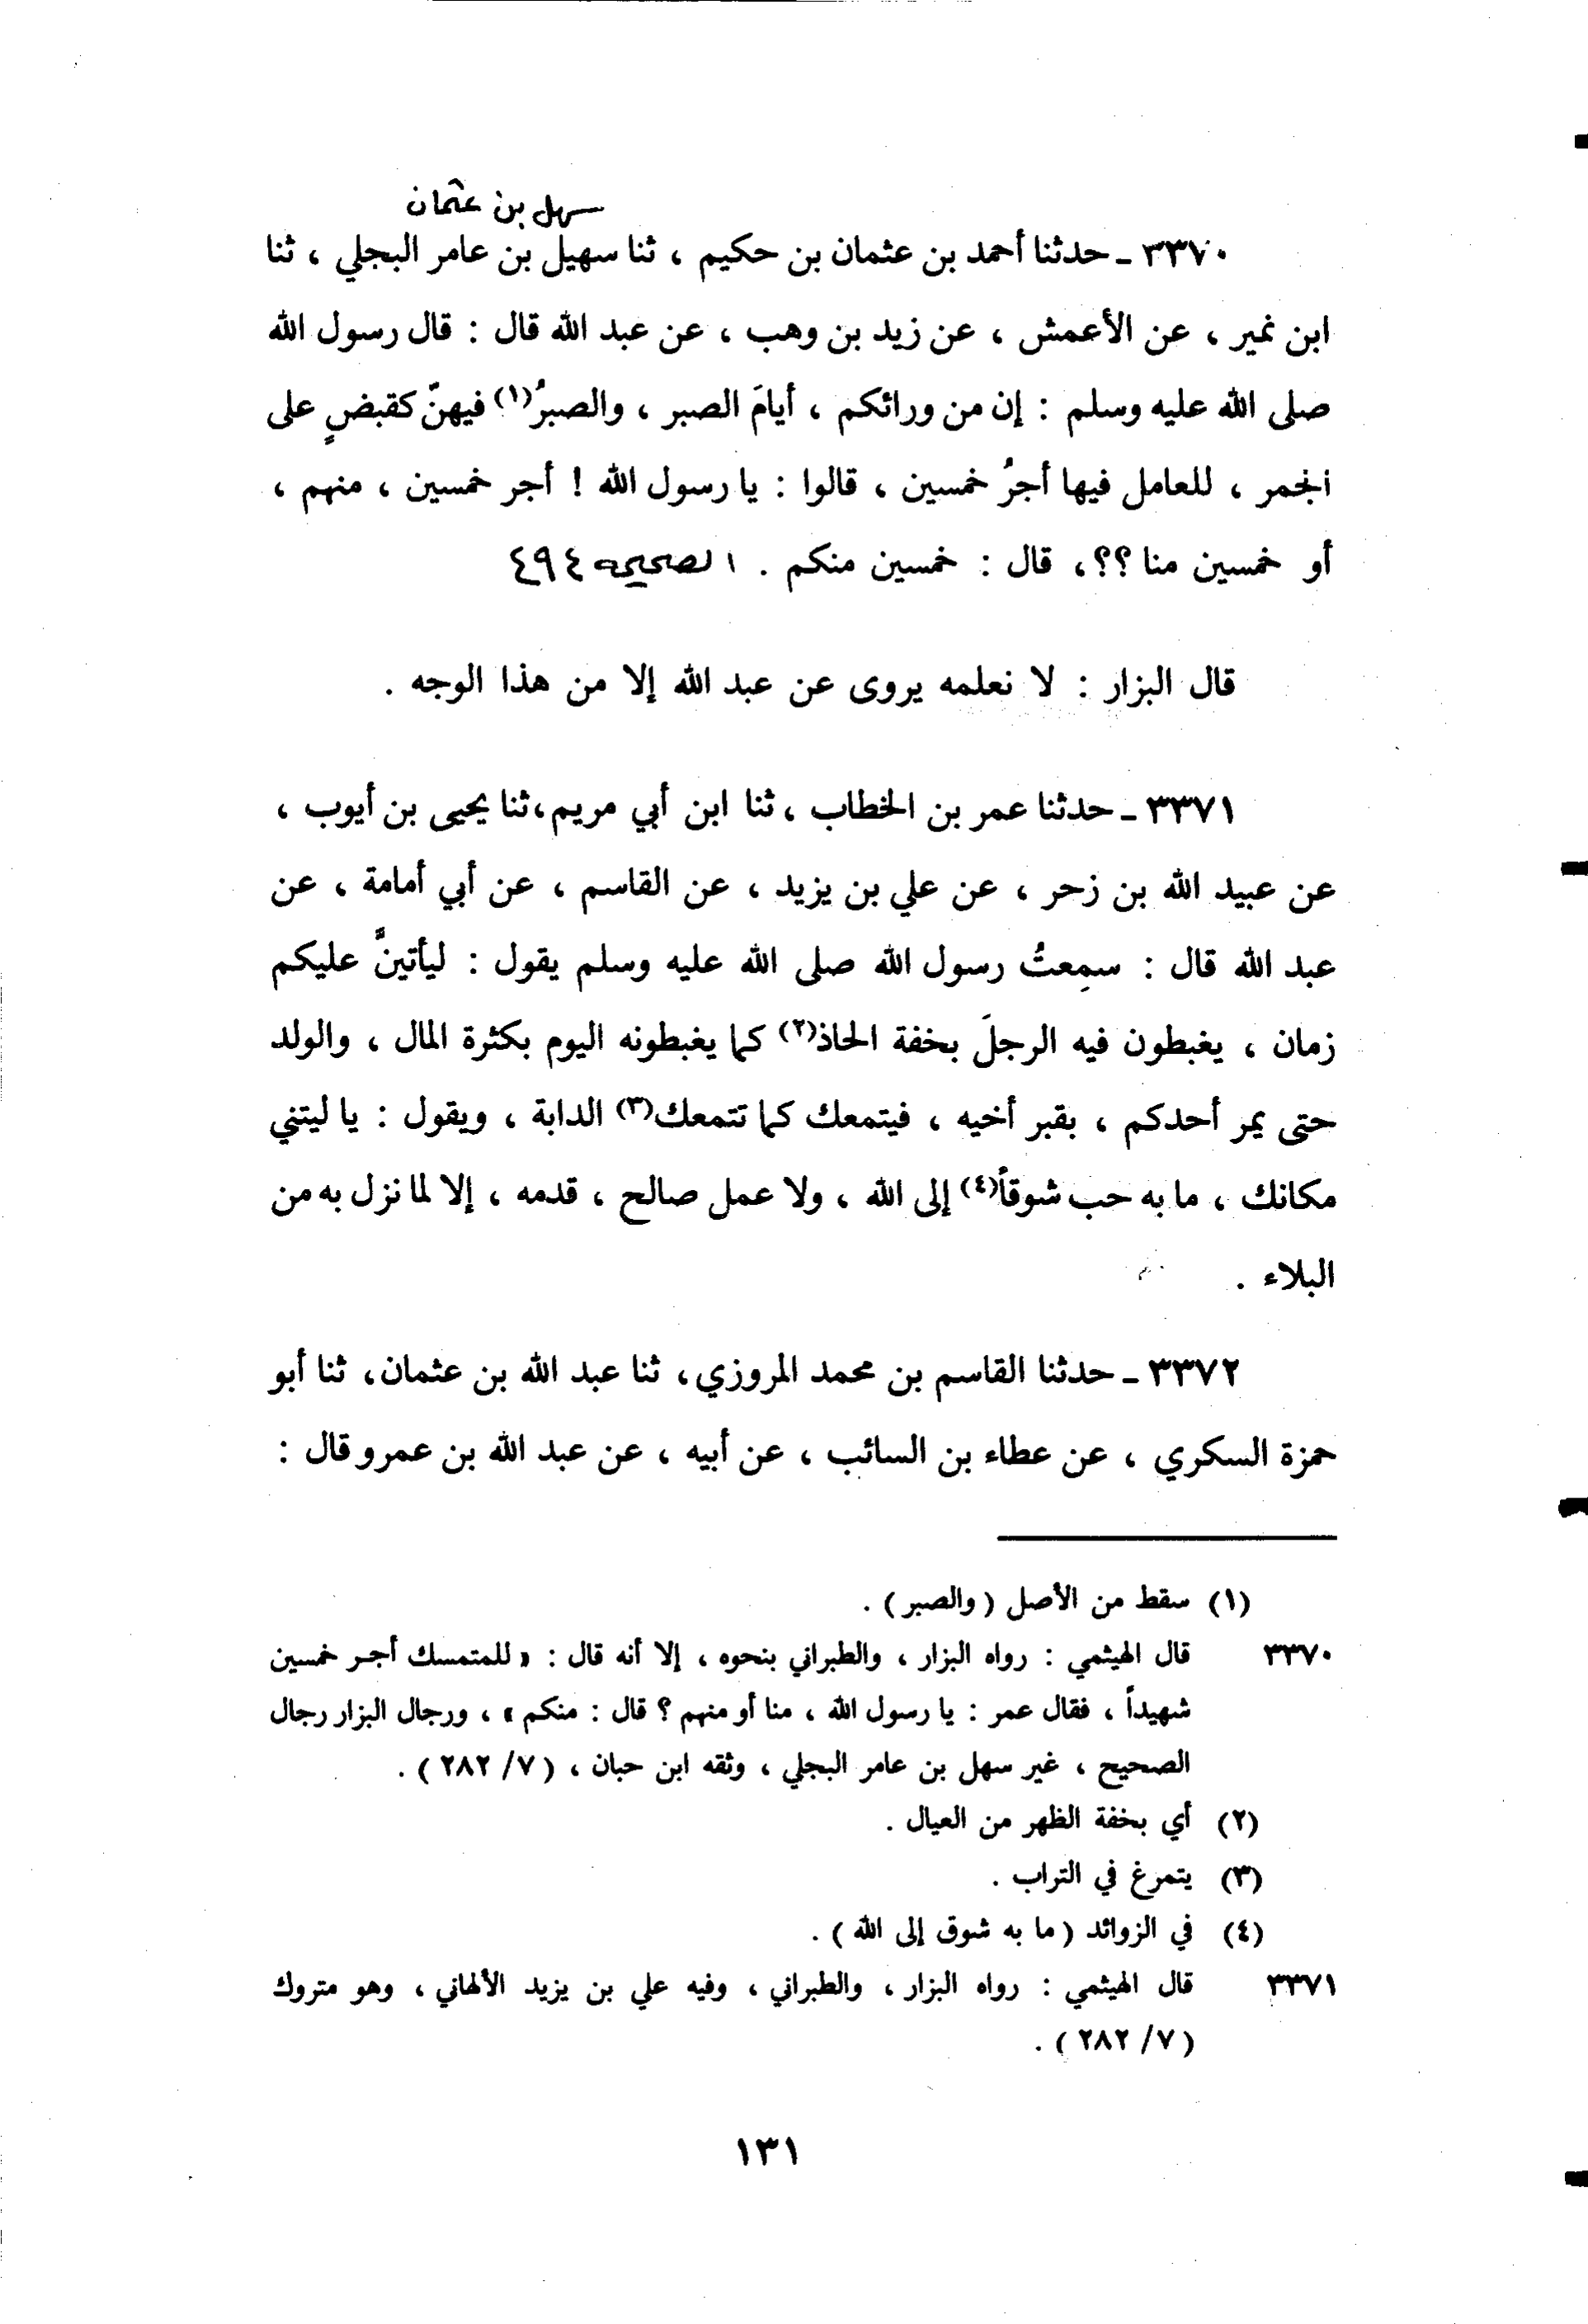 سهل بن عثمان
٣٣٧٠ ـ حدثنا أحمد بن عثمان بن حكيم ، ثنا سهيل بن عامر البجلي ، ثنا
ابن نمير ، عن الأعمش ، عن زيد بن وهب ، عن عبد الله قال : قال رسول الله
صلى الله عليه وسلم : إن من ورائكم ، أيامَ الصبر ، والصبرُ(١) فيهنّ كقبضٍ على
الجمر ، للعامل فيها أجرُ خمسين ، قالوا : يا رسول الله ! أجر خمسين ، منهم ،
أو خمسين منا ؟؟، قال : خمسين منكم . الصحيحة ٤٩٤
قال البزار : لا نعلمه يروى عن عبد الله إلا من هذا الوجه .
٣٣٧١ ـ حدثنا عمر بن الخطاب ، ثنا ابن أبي مريم،ثنا يحيى بن أيوب ،
عن عبيد الله بن زحر ، عن علي بن يزيد ، عن القاسم ، عن أبي أمامة ، عن
عبد الله قال : سمِعتُ رسول الله صلى الله عليه وسلم يقول : ليأتينَّ عليكم
زمان ، يغبطون فيه الرجلَ بخفة الحاذ(٢) كما يغبطونه اليوم بكثرة المال ، والولد
حتى يمر أحدكم ، بقبر أخيه ، فيتمعك كما تتمعك(٣) الدابة ، ويقول : يا ليتني
مكانك ، ما به حب شوقاً(٤) إلى الله ، ولا عمل صالح ، قدمه ، إلا لما نزل به من
البلاء .
٣٣٧٢ ـ حدثنا القاسم بن محمد المروزي، ثنا عبد الله بن عثمان، ثنا أبو
حمزة السكري ، عن عطاء بن السائب ، عن أبيه ، عن عبد الله بن عمرو قال :
(١) سقط من الأصل ( والصبر ) .
٣٣٧٠ قال الهيثمي : رواه البزار ، والطبراني بنحوه ، إلا أنه قال : « للمتمسك أجر خمسين
شهيداً ، فقال عمر : يا رسول الله ، منا أو منهم ؟ قال : منكم » ، ورجال البزار رجال
الصحيح ، غير سهل بن عامر البجلي ، وثقه ابن حبان ، ( ٧/ ٢٨٢ ) .
(٢) أي بخفة الظهر من العيال .
(٣) يتمرغ في التراب .
(٤) في الزوائد ( ما به شوق إلى الله ) .
٣٣٧١ قال الهيثمي : رواه البزار ، والطبراني ، وفيه علي بن يزيد الألهاني ، وهو متروك
( ٧/ ٢٨٢ ) .
١٣١